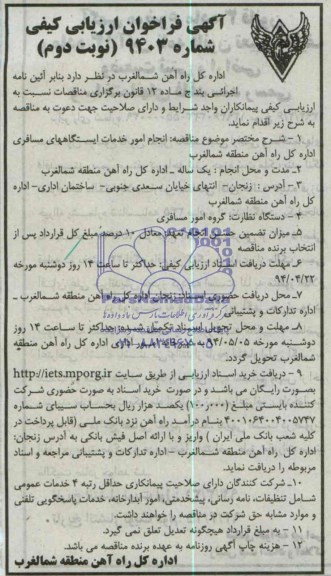 آگهی فراخوان ارزیابی کیفی
شماره ۹۴۰۳ (نوبت دوم)
اداره کل راه آهن شمالغرب در نظر دارد بنابر آئین نامه
اجرائی بند ج ماده ۱۲ قانون برگزاری مناقصات نسبت به
ارزیابی کیفی پیمانکاران واجد شرایط و دارای صلاحیت جهت دعوت به مناقصه
به شرح زیر اقدام نماید.
۱ – شرح مختصر موضوع مناقصه: انجام امور خدمات ایستگاههای مسافری
اداره کل راه آهن منطقه شمالغرب
۲ – مدت و محل انجام : یک ساله – اداره کل راه آهن منطقه شمالغرب
۳ – آدرس : زنجان– انتهای خیابان سعدی جنوبی– ساختمان اداری– اداره
کل راه آهن منطقه شمالغرب
۴ – دستگاه نظارت: گروه امور مسافری
۵ – میزان تضمین حسن انجام تعهد معادل ۱۰ درصد مبلغ کل قرارداد پس از
انتخاب برنده مناقصه
۶ – مهلت دریافت اسناد ارزیابی کیفی: حداکثر تا ساعت ۱۴ روز دوشنبه مورخه
۹۴/۰۴/۲۲
۷ – محل دریافت حضوری اسناد: زنجان اداره کل راه آهن منطقه شمالغرب –
اداره تدارکات و پشتیبانی
۸ – مهلت و محل تحویل اسناد تکمیل شده: حداکثر تا ساعت ۱۴ روز
دوشنبه مورخه ۹۴/۰۵/۰۵ به دبیرخانه امور اداری اداره کل راه آهن منطقه
شمالغرب تحویل گردد.
۹ – دریافت خرید اسناد ارزیابی از طریق سایت http://iets.mporg.ir
بصورت رایگان می باشد و در صورت خرید اسناد به صورت حضوری شرکت
کننده بایستی مبلغ (۱۰۰,۰۰۰) یکصد هزار ریال بحساب سیبای شماره
بنام درآمد راه آهن نزد بانک ملی (قابل پرداخت در
کلیه شعب بانک ملی ایران ) واریز و با ارائه اصل فیش بانکی به آدرس زنجان:
اداره کل راه آهن منطقه شمالغرب – اداره تدارکات و پشتیبانی مراجعه و اسناد
مربوطه را دریافت نماید.
۱۰– شرکت کنندگان دارای صلاحیت پیمانکاری حداقل رتبه ۴ خدمات عمومی
شامل تنظیفات، نامه رسانی، پیشخدمتی، امور آبدارخانه، خدمات پاسخگویی تلفنی
و موارد مشابه حق شرکت در مناقصه را خواهند داشت.
۱۱ – به مبلغ قرارداد هیچگونه تعدیل تعلق نمی گیرد.
۱۲ – هزینه چاپ آگهی روزنامه به عهده برنده مناقصه می باشد.
اداره کل راه آهن منطقه شمالغرب